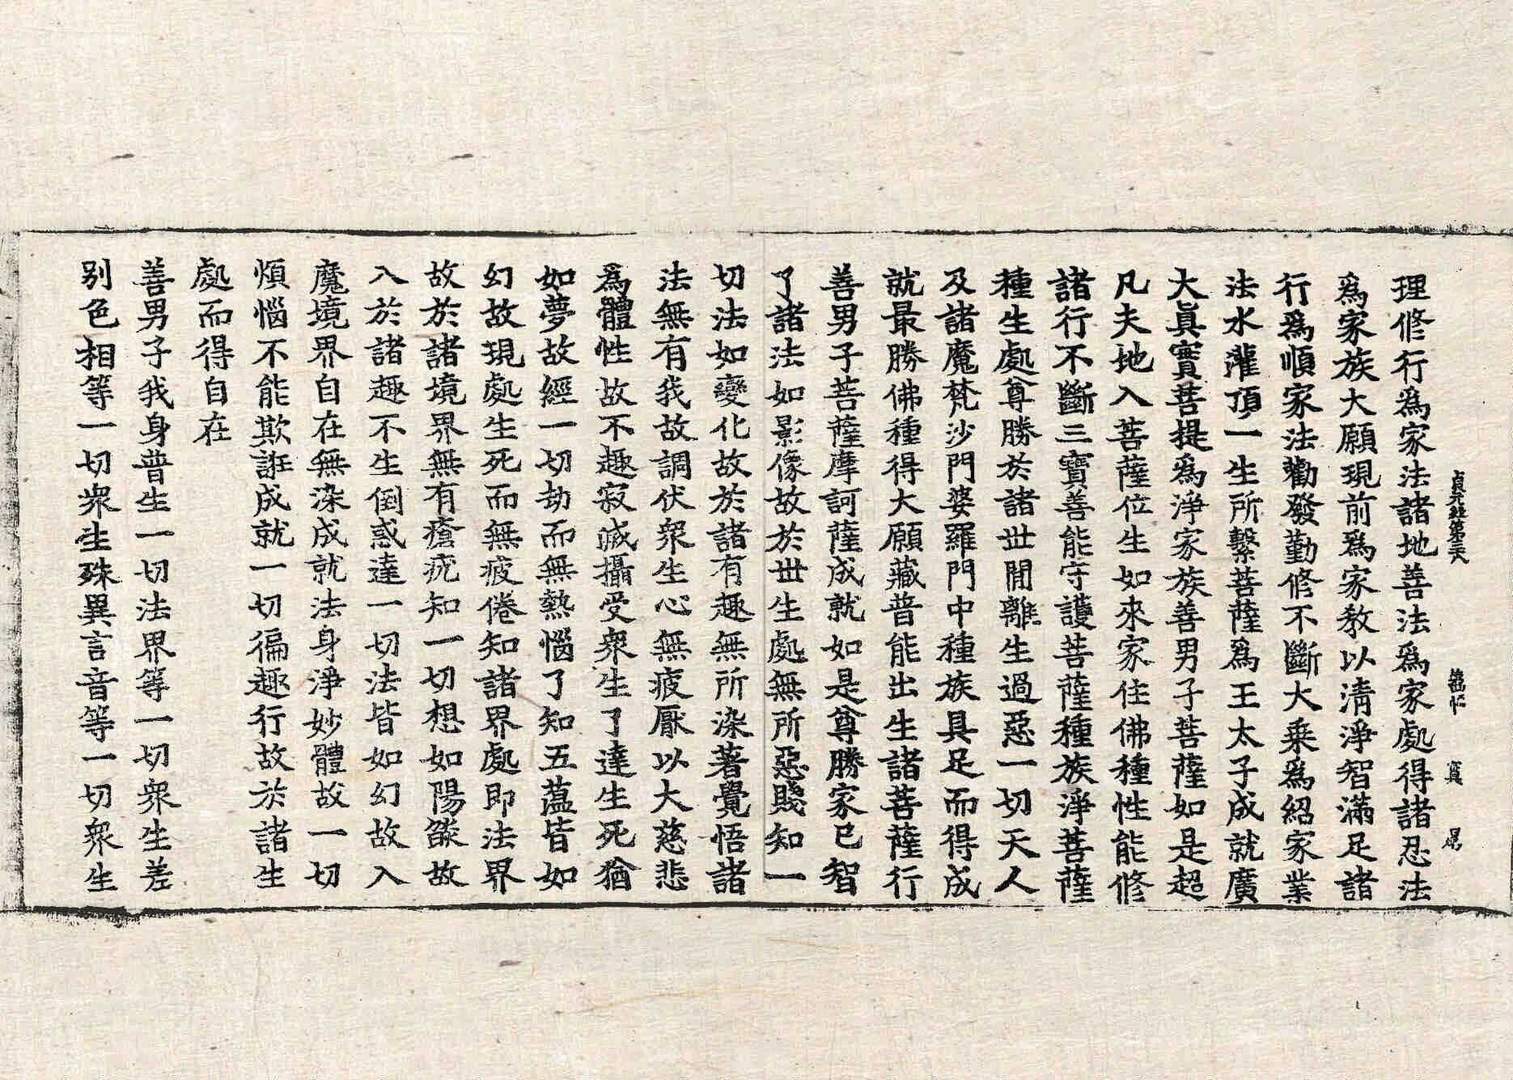 理修行為家法諸地善法為家處得諸忍法
為家族大願現前為家教以清淨智滿足諸
行為順家法勸發勤修不斷大乘為紹家業
法水灌頂一生所繫菩薩為王太子成就廣
大真實菩提為淨家族善男子菩薩如是超
凡夫地入菩薩位生如來家住佛種性能修
諸行不斷三寶善能守護菩薩種族淨菩薩
種生處尊勝於諸世間離生過惡一切天人
及諸魔梵沙門婆羅門中種族具足而得成
就最勝佛種得大願藏普能出生諸菩薩行
善男子菩薩摩訶薩成就如是尊勝家已智
了諸法如影像故於世生處無所惡賤知一
切法如變化故於諸有趣無所染著覺悟諸
法無有我故調伏眾生心無疲厭以大慈悲
為體性故不趣寂滅攝受眾生了達生死猶
如夢故經一切劫而無熱惱了知五蘊皆如
幻故現處生死而無疲倦知諸界處即法界
故於諸境界無有瘡疣知一切想如陽燄故
入於諸趣不生倒惑達一切法皆如幻故入
魔境界自在無染成就法身淨妙體故一切
煩惱不能欺誑成就一切徧趣行故於諸生
處而得自在
善男子我身普生一切法界等一切眾生差
別色相等一切眾生殊異言音等一切眾生